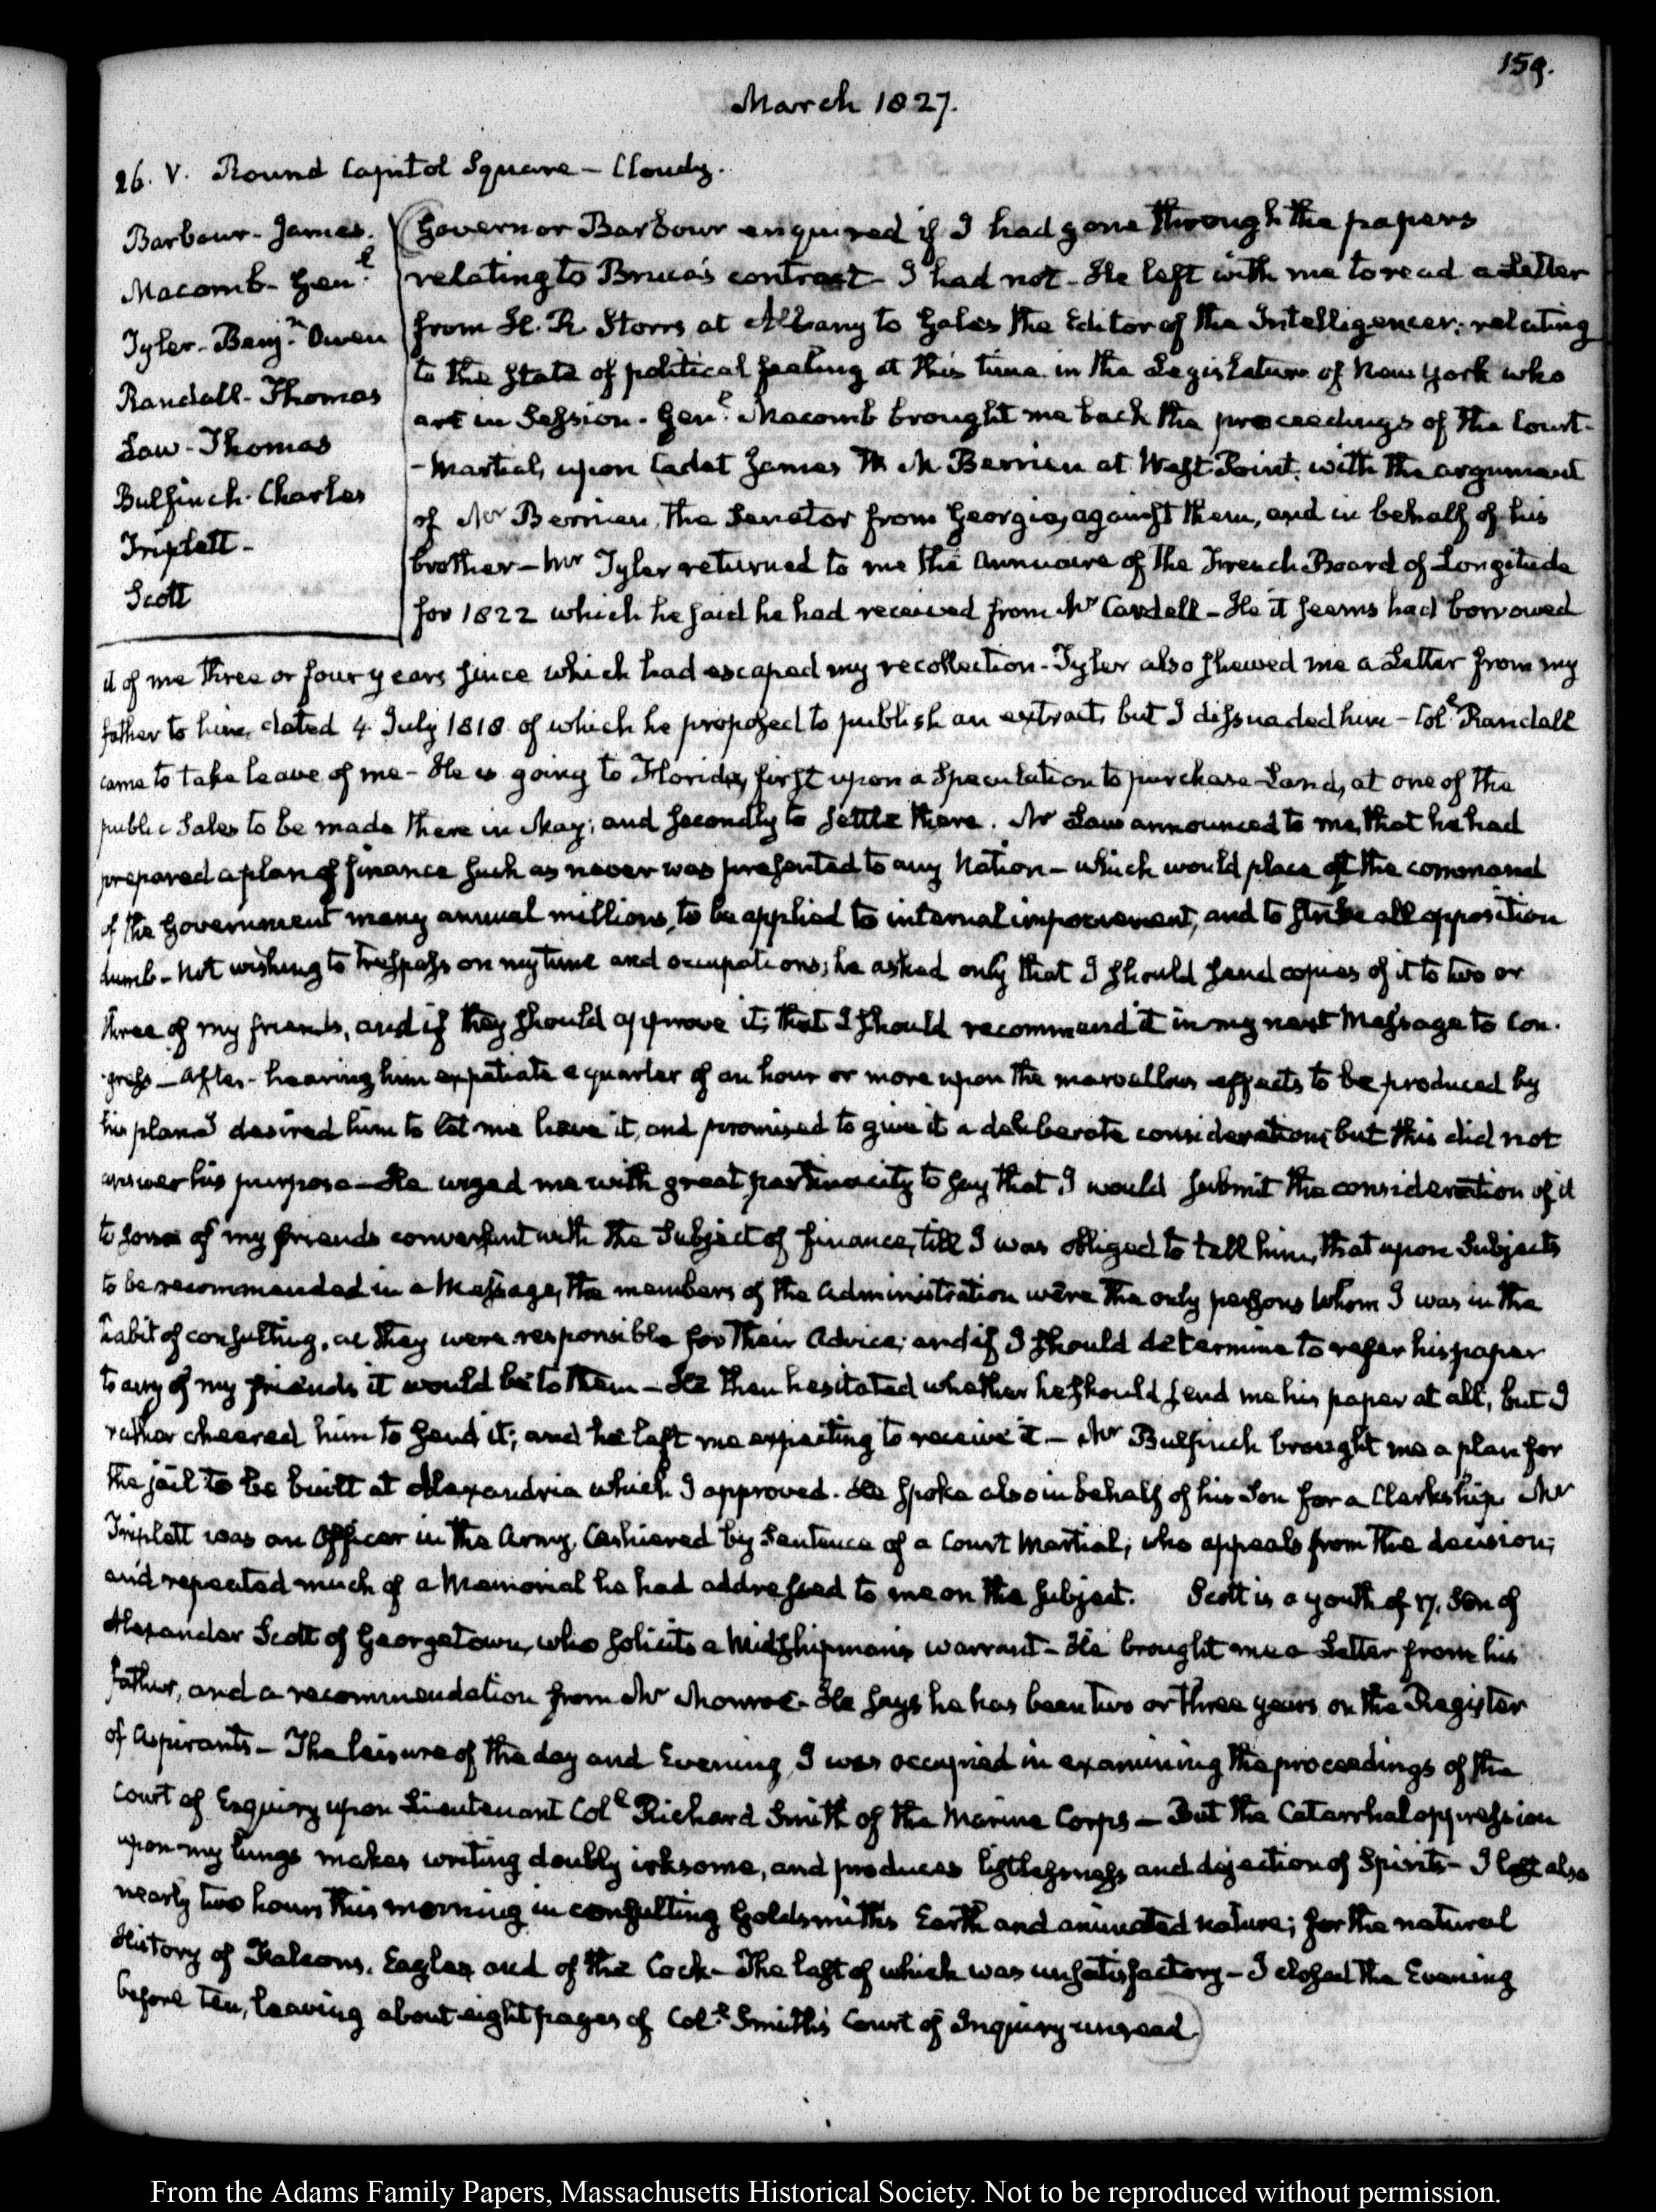 159.
March 1827.
26. V. Round Capitol Square – Cloudy.
Barbour - James.
Macomb - Genl.
Tyler - Benjn. Owen
Randall - Thomas
Law - Thomas
Bulfinch - Charles
Triplett -
Scott
Governor Barbour enquired if I had gone through the papers
relating to Bruce's contract - I had not - He left with me to read a Letter
from H. R. Storrs at Albany to Gales the Editor of the Intelligencer, relating
to the State of political feeling at this time in the Legislature of New York who
are in Session. Genl. Macomb brought me back the proceedings of the Court-
-Martial, upon Cadet James M Berrien at West Point, with the argument
of Mr Berrien, the Senator from Georgia, against them, and in behalf of his
brother – Mr Tyler returned to me the Annuaire of the French Board of Longitude
for 1822 which he said he had received from Mr Cardell – He it seems had borrowed
it of me three or four years since which had escaped my recollection - Tyler also shewed me a Letter from my
father to him, dated 4. July 1818 of which he proposed to publish an extract, but I dissuaded him – Coll. Randall
came to take leave of me - He is going to Florida, first upon a Speculation to purchase Land, at one of the
public Sales to be made there in May; and secondly to settle there. Mr Law announced to me, that he had
prepared a plan of finance such as never was presented to any Nation – which would place at the command
of the Government many annual millions, to be applied to internal improvement, and to strike all opposition
dumb – Not wishing to trespass on my time and occupations; he asked only that I should send copies of it to two or
three of my friends, and if they should approve it, that I should recommend it in my next Message to Con-
-gress – After hearing him expatiate a quarter of an hour or more upon the marvellous effects to be produced by
his plan I desired him to let me have it, and promised to give it a deliberate consideration; but this did not
answer his purpose – He urged me with great pertinacity to say that I would submit the consideration of it
to some of my friends conversant with the Subject of finance, till I was obliged to tell him, that upon Subjects
to be recommended in a Message, the members of the Administration were the only persons whom I was in the
habit of consulting, as they were responsible for their Advice; and if I should determine to refer his paper
to any of my friends it would be to them – He then hesitated whether he should send me his paper at all, but I
rather cheered him to send it; and he left me expecting to receive it – Mr Bulfinch brought me a plan for
the jail to be built at Alexandria which I approved. He spoke also in behalf of his Son for a Clerkship. Mr
Triplett was an Officer in the Army, Cashiered by Sentence of a Court Martial; who appeals from the decision;
and repeated much of a Memorial he had addressed to me on the subject. Scott is a youth of 17. Son of
Alexander Scott of Georgetown, who solicits a Midshipman's warrant – He brought me a Letter from his
father, and a recommendation from Mr Monroe - He says he has been two or three years on the Register
of Aspirants – The leisure of the day and Evening I was occupied in examining the proceedings of the
Court of Enquiry upon Lieutenant Coll Richard Smith of the Marine Corps – But the Catarrhal oppression
upon my lungs makes writing doubly irksome, and produces listlessness and dejection of Spirits – I lost also
nearly two hours this morning in consulting Goldsmith's Earth and animated nature; for the natural
History of Falcons, Eagles and of the Cock – The last of which was unsatisfactory – I closed the Evening
before ten, leaving about eight pages of Coll. Smith's Court of Inquiry unread.
From the Adams Family Papers, Massachusetts Historical Society. Not to be reproduced without permission.